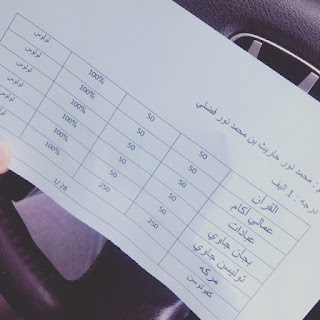 : محمد نور حاريث بن محمد نور فضلي
درجه : 1 اليف
القرآن 50 50 100% لولوس
عمالي أكام 50 50 100% لولوس
عبادات 50 50 100% لولوس
بچان جاوي 50 50 100% لولوس
توليسن جاوي 50 50 100% لولوس
مركه 250 250 1/28
كفوتوسن